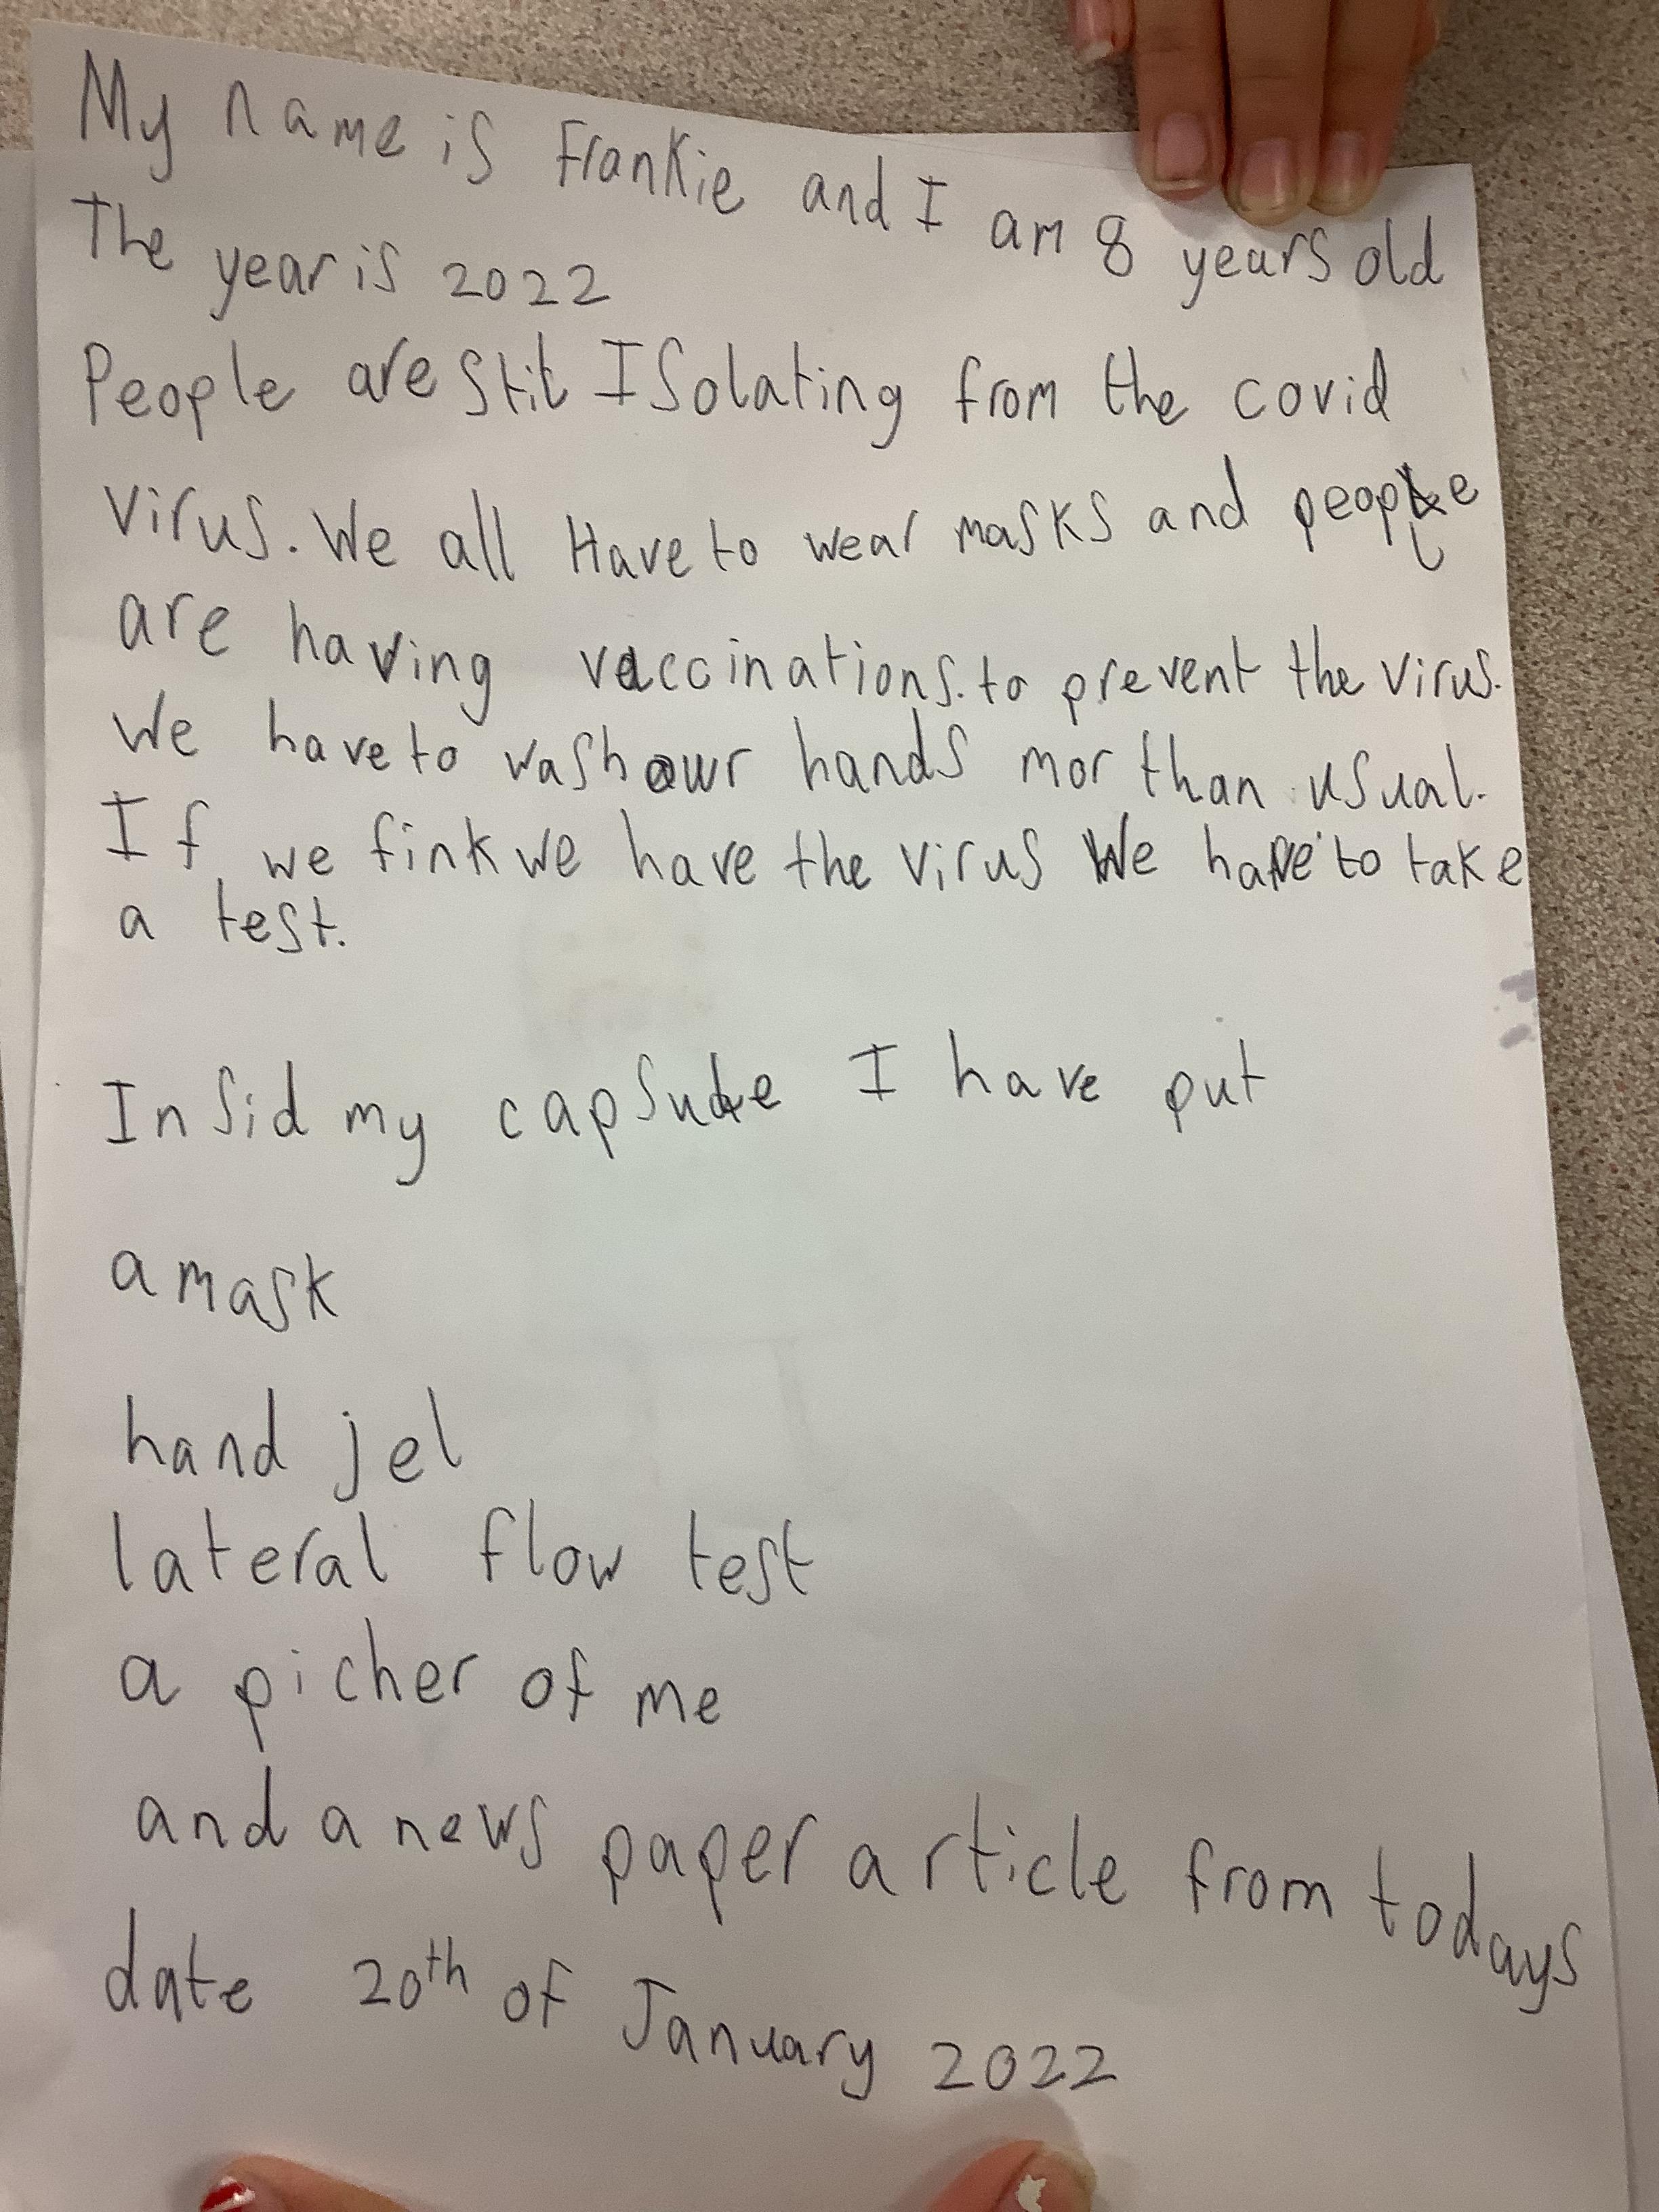 My name is Frankie and I am 8 years old
The year is 2022
People are still Isolating from the covid
virus. We all Have to wear masks and people
are having vaccinations. to prevent the virus.
We have to wash owr hands mor than usual.
If we fink we have the virus We have to take
a test.
Insid my capsule I have put
a mask
hand jel
lateral flow test
a picher of me
and a news paper article from todays
date 20th of January 2022